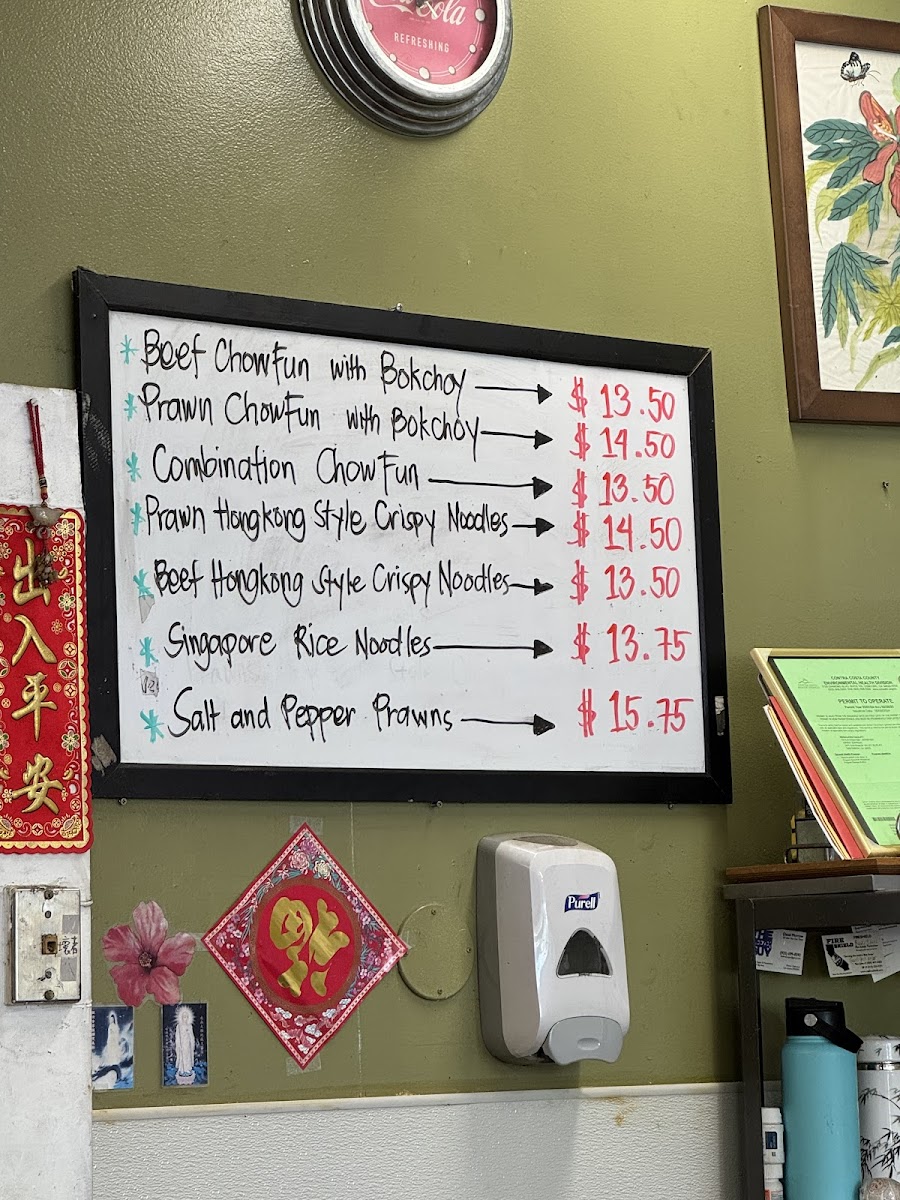 Coca-Cola
REFRESHING
* Beef ChowFun with Bokchoy → $ 13.50
* Prawn ChowFun with Bokchoy → $ 14.50
* Combination ChowFun → $ 13.50
* Prawn Hongkong Style Crispy Noodles → $ 14.50
* Beef Hongkong Style Crispy Noodles → $ 13.50
* Singapore Rice Noodles → $ 13.75
* Salt and Pepper Prawns → $ 15.75
出入平安
福
Purell
CONTRA COSTA COUNTY
ENVIRONMENTAL HEALTH DIVISION
PERMIT TO OPERATE
FIRE
SHIELD